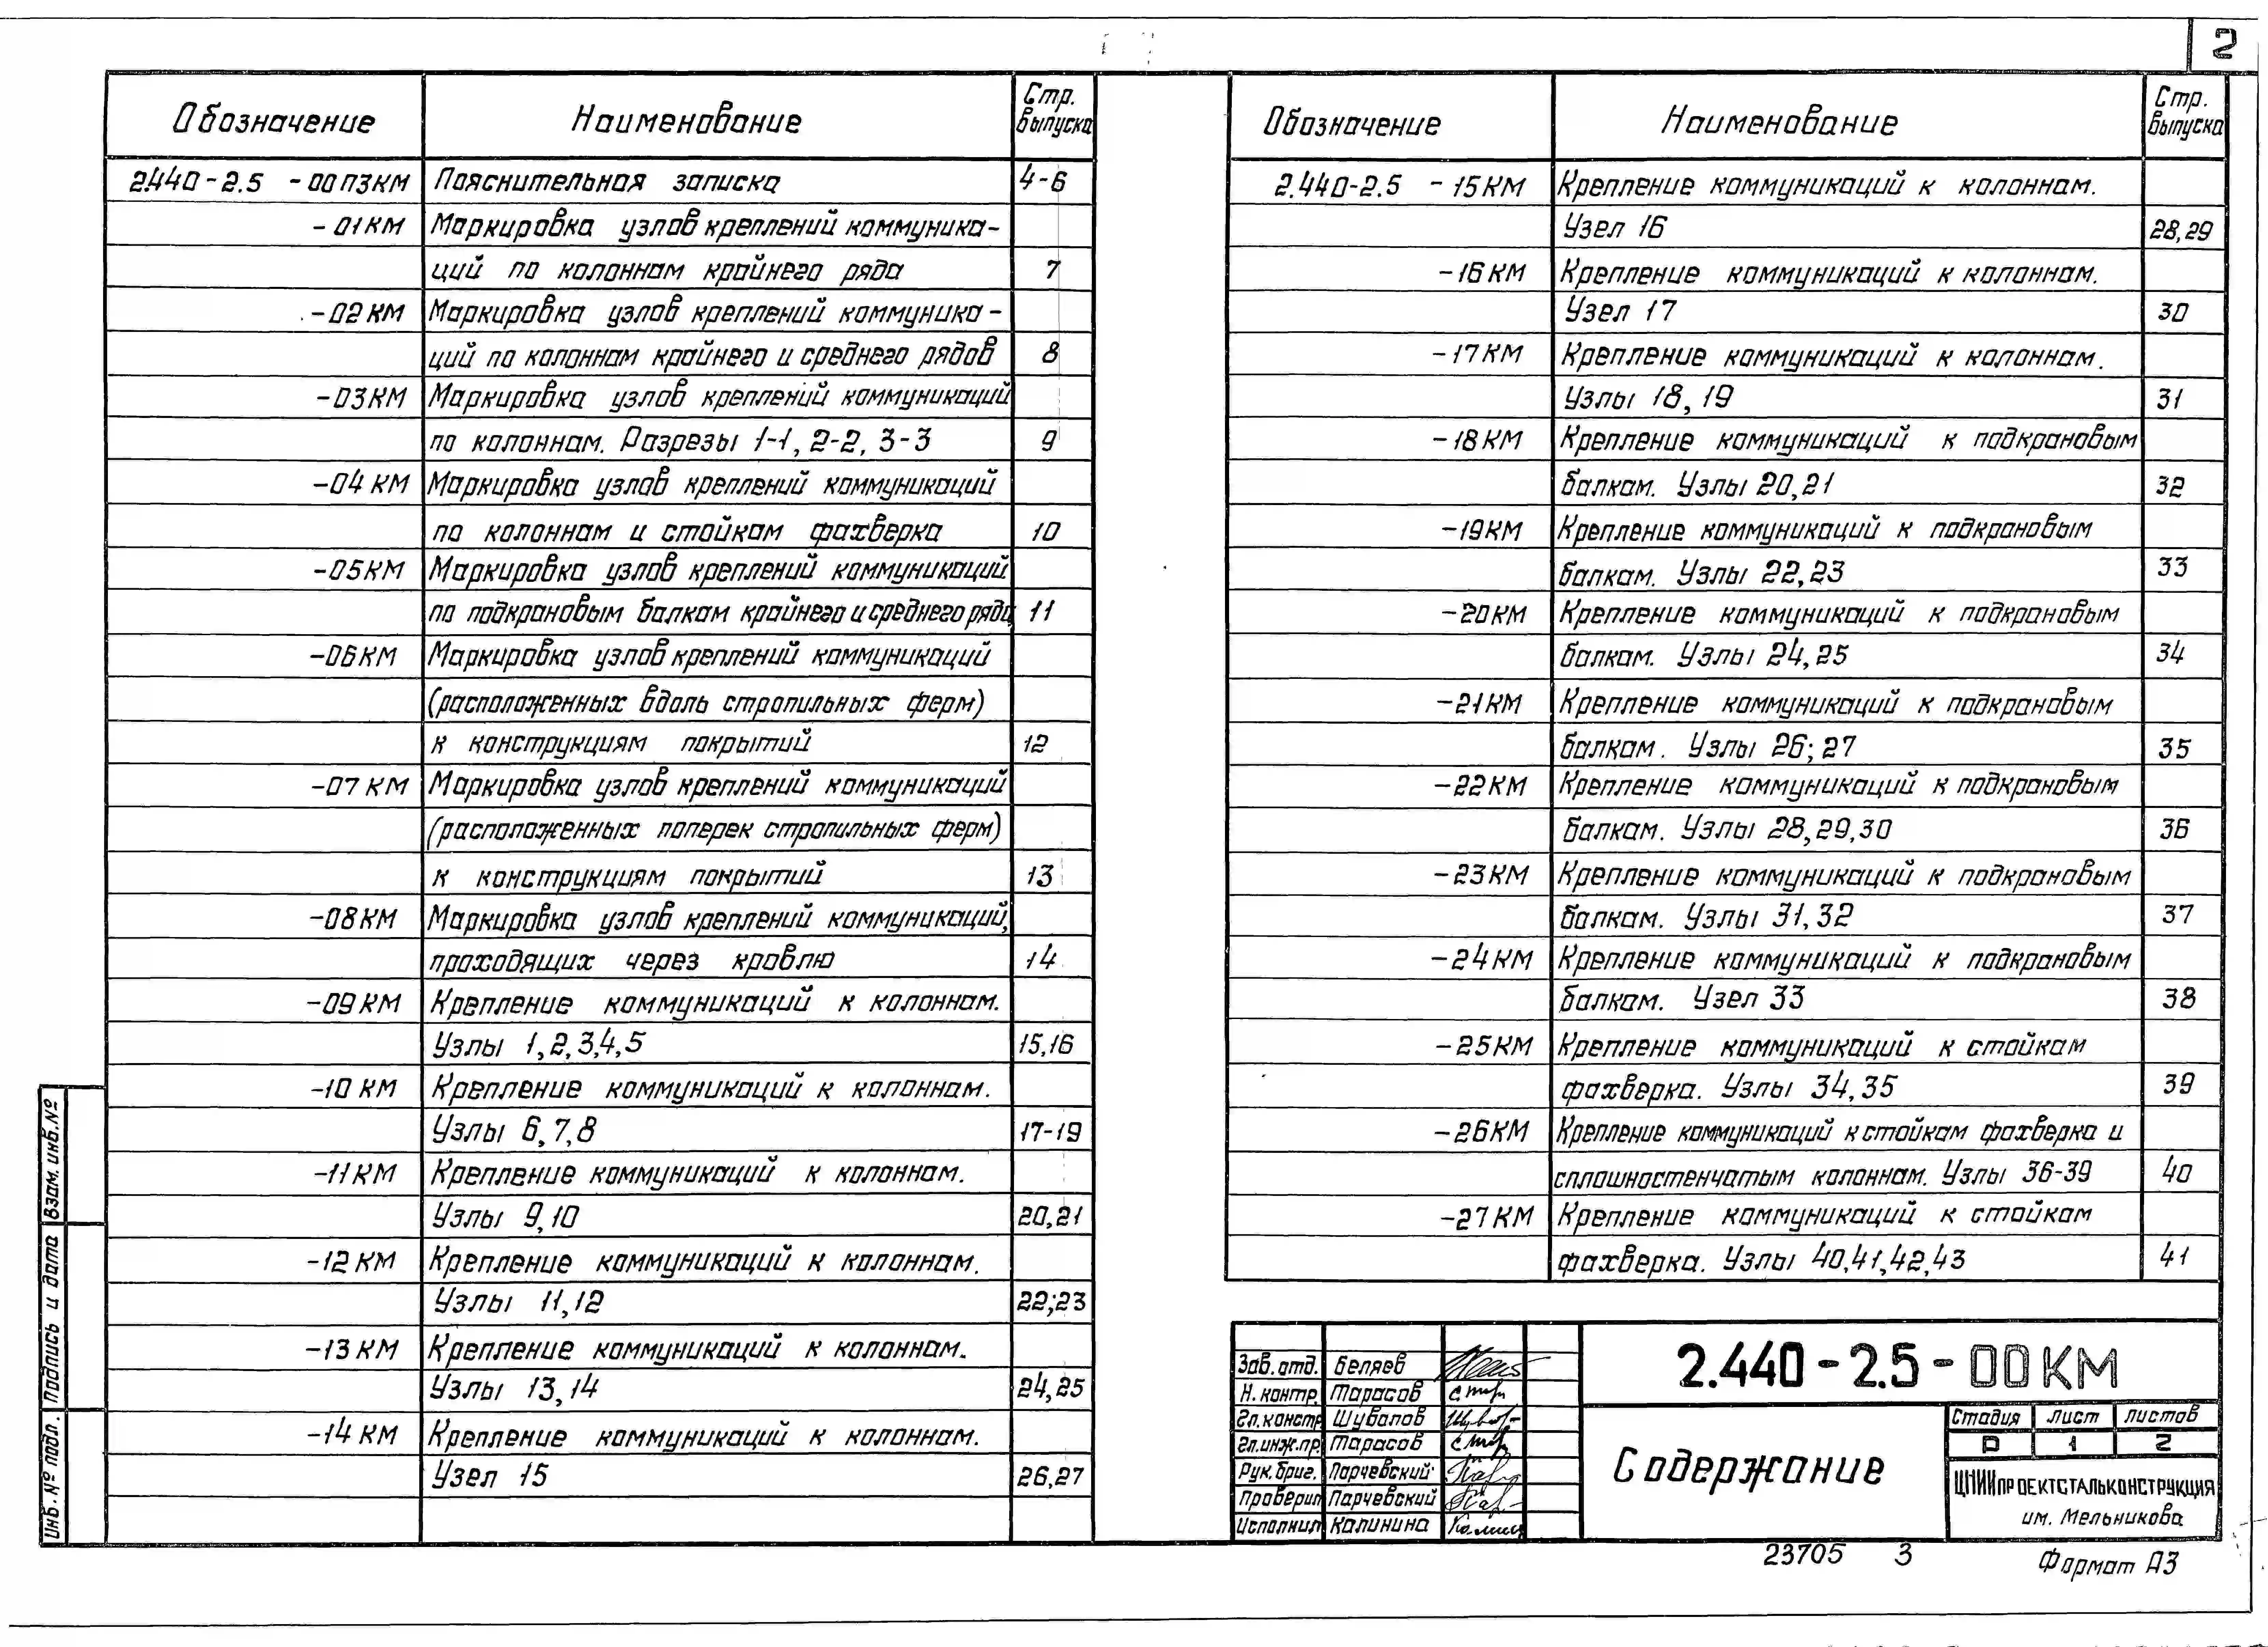 2
Обозначение Наименование Стр. выпуска
2.440-2.5 -00ПЗКМ Пояснительная записка 4-6
-01КМ Маркировка узлов креплений коммуника-
ций по колоннам крайнего ряда 7
-02КМ Маркировка узлов креплений коммуника-
ций по колоннам крайнего и среднего рядов 8
-03КМ Маркировка узлов креплений коммуникаций
по колоннам. Разрезы 1-1, 2-2, 3-3 9
-04КМ Маркировка узлов креплений коммуникаций
по колоннам и стойкам фахверка 10
-05КМ Маркировка узлов креплений коммуникаций
по подкрановым балкам крайнего и среднего ряда 11
-06КМ Маркировка узлов креплений коммуникаций
(расположенных вдоль стропильных ферм)
к конструкциям покрытий 12
-07КМ Маркировка узлов креплений коммуникаций
(расположенных поперек стропильных ферм)
к конструкциям покрытий 13
-08КМ Маркировка узлов креплений коммуникаций,
проходящих через кровлю 14
-09КМ Крепление коммуникаций к колоннам.
Узлы 1,2,3,4,5 15,16
-10КМ Крепление коммуникаций к колоннам.
Узлы 6,7,8 17-19
-11КМ Крепление коммуникаций к колоннам.
Узлы 9,10 20,21
-12КМ Крепление коммуникаций к колоннам.
Узлы 11,12 22;23
-13КМ Крепление коммуникаций к колоннам.
Узлы 13,14 24,25
-14КМ Крепление коммуникаций к колоннам.
Узел 15 26,27
Обозначение Наименование Стр. выпуска
2.440-2.5 -15КМ Крепление коммуникаций к колоннам.
Узел 16 28,29
-16КМ Крепление коммуникаций к колоннам.
Узел 17 30
-17КМ Крепление коммуникаций к колоннам.
Узлы 18,19 31
-18КМ Крепление коммуникаций к подкрановым
балкам. Узлы 20,21 32
-19КМ Крепление коммуникаций к подкрановым
балкам. Узлы 22,23 33
-20КМ Крепление коммуникаций к подкрановым
балкам. Узлы 24,25 34
-21КМ Крепление коммуникаций к подкрановым
балкам. Узлы 26;27 35
-22КМ Крепление коммуникаций к подкрановым
балкам. Узлы 28,29,30 36
-23КМ Крепление коммуникаций к подкрановым
балкам. Узлы 31,32 37
-24КМ Крепление коммуникаций к подкрановым
балкам. Узел 33 38
-25КМ Крепление коммуникаций к стойкам
фахверка. Узлы 34,35 39
-26КМ Крепление коммуникаций к стойкам фахверка и
сплошностенчатым колоннам. Узлы 36-39 40
-27КМ Крепление коммуникаций к стойкам
фахверка. Узлы 40,41,42,43 41
Инв.№ подл. Подпись и дата Взам.инв.№
Зав.отд. Беляев
Н.контр. Тарасов
Гл.констр. Шувалов
Гл.инж.пр. Тарасов
Рук.бриг. Парчевский
Проверил Парчевский
Исполнил Калинина
2.440-2.5-00КМ
Содержание
Стадия Лист Листов
Р 1 2
ЦНИИпроектстальконструкция
им. Мельникова
23705 3
Формат А3